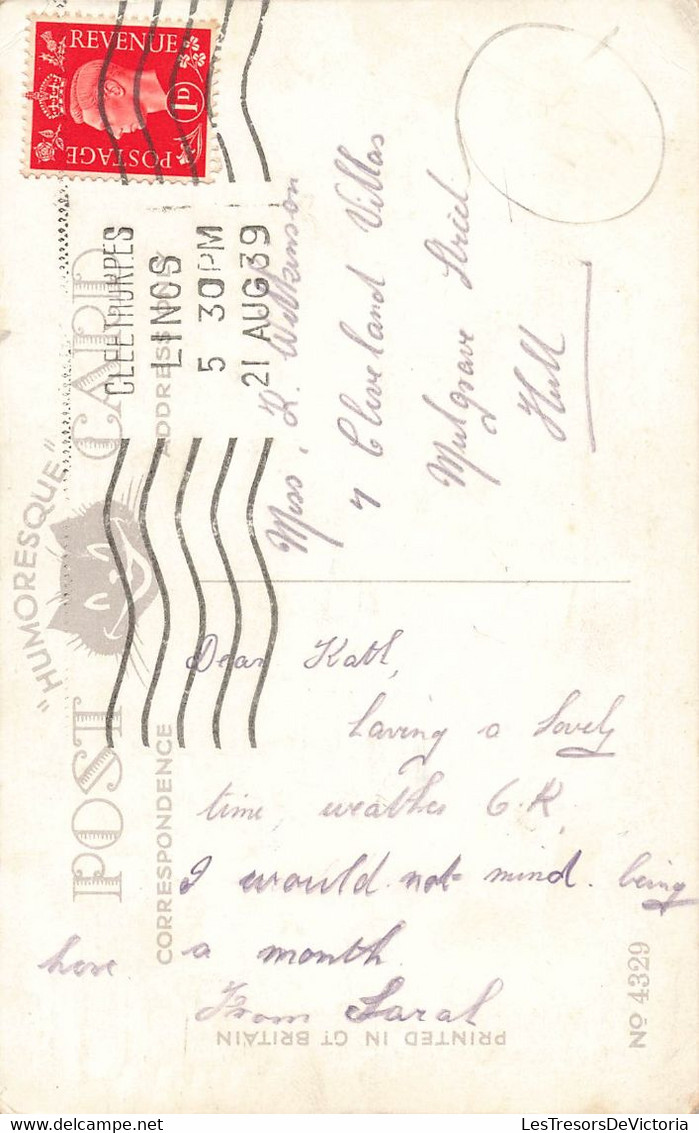 "HUMORESQUE"
POST CARD
CORRESPONDENCE
ADDRESS
REVENUE
1D
POSTAGE
CLEETHORPES
LINCS
5 30PM
21 AUG39
Miss, K. Wilkinson
7 Cleveland Villas
Mulgrave Street
Hull
Dear Kath,
having a lovely
time, weather O.K,
I would not mind being
here a month.
From Sarah
PRINTED IN GT BRITAIN
No 4329
LesTresorsDeVictoria